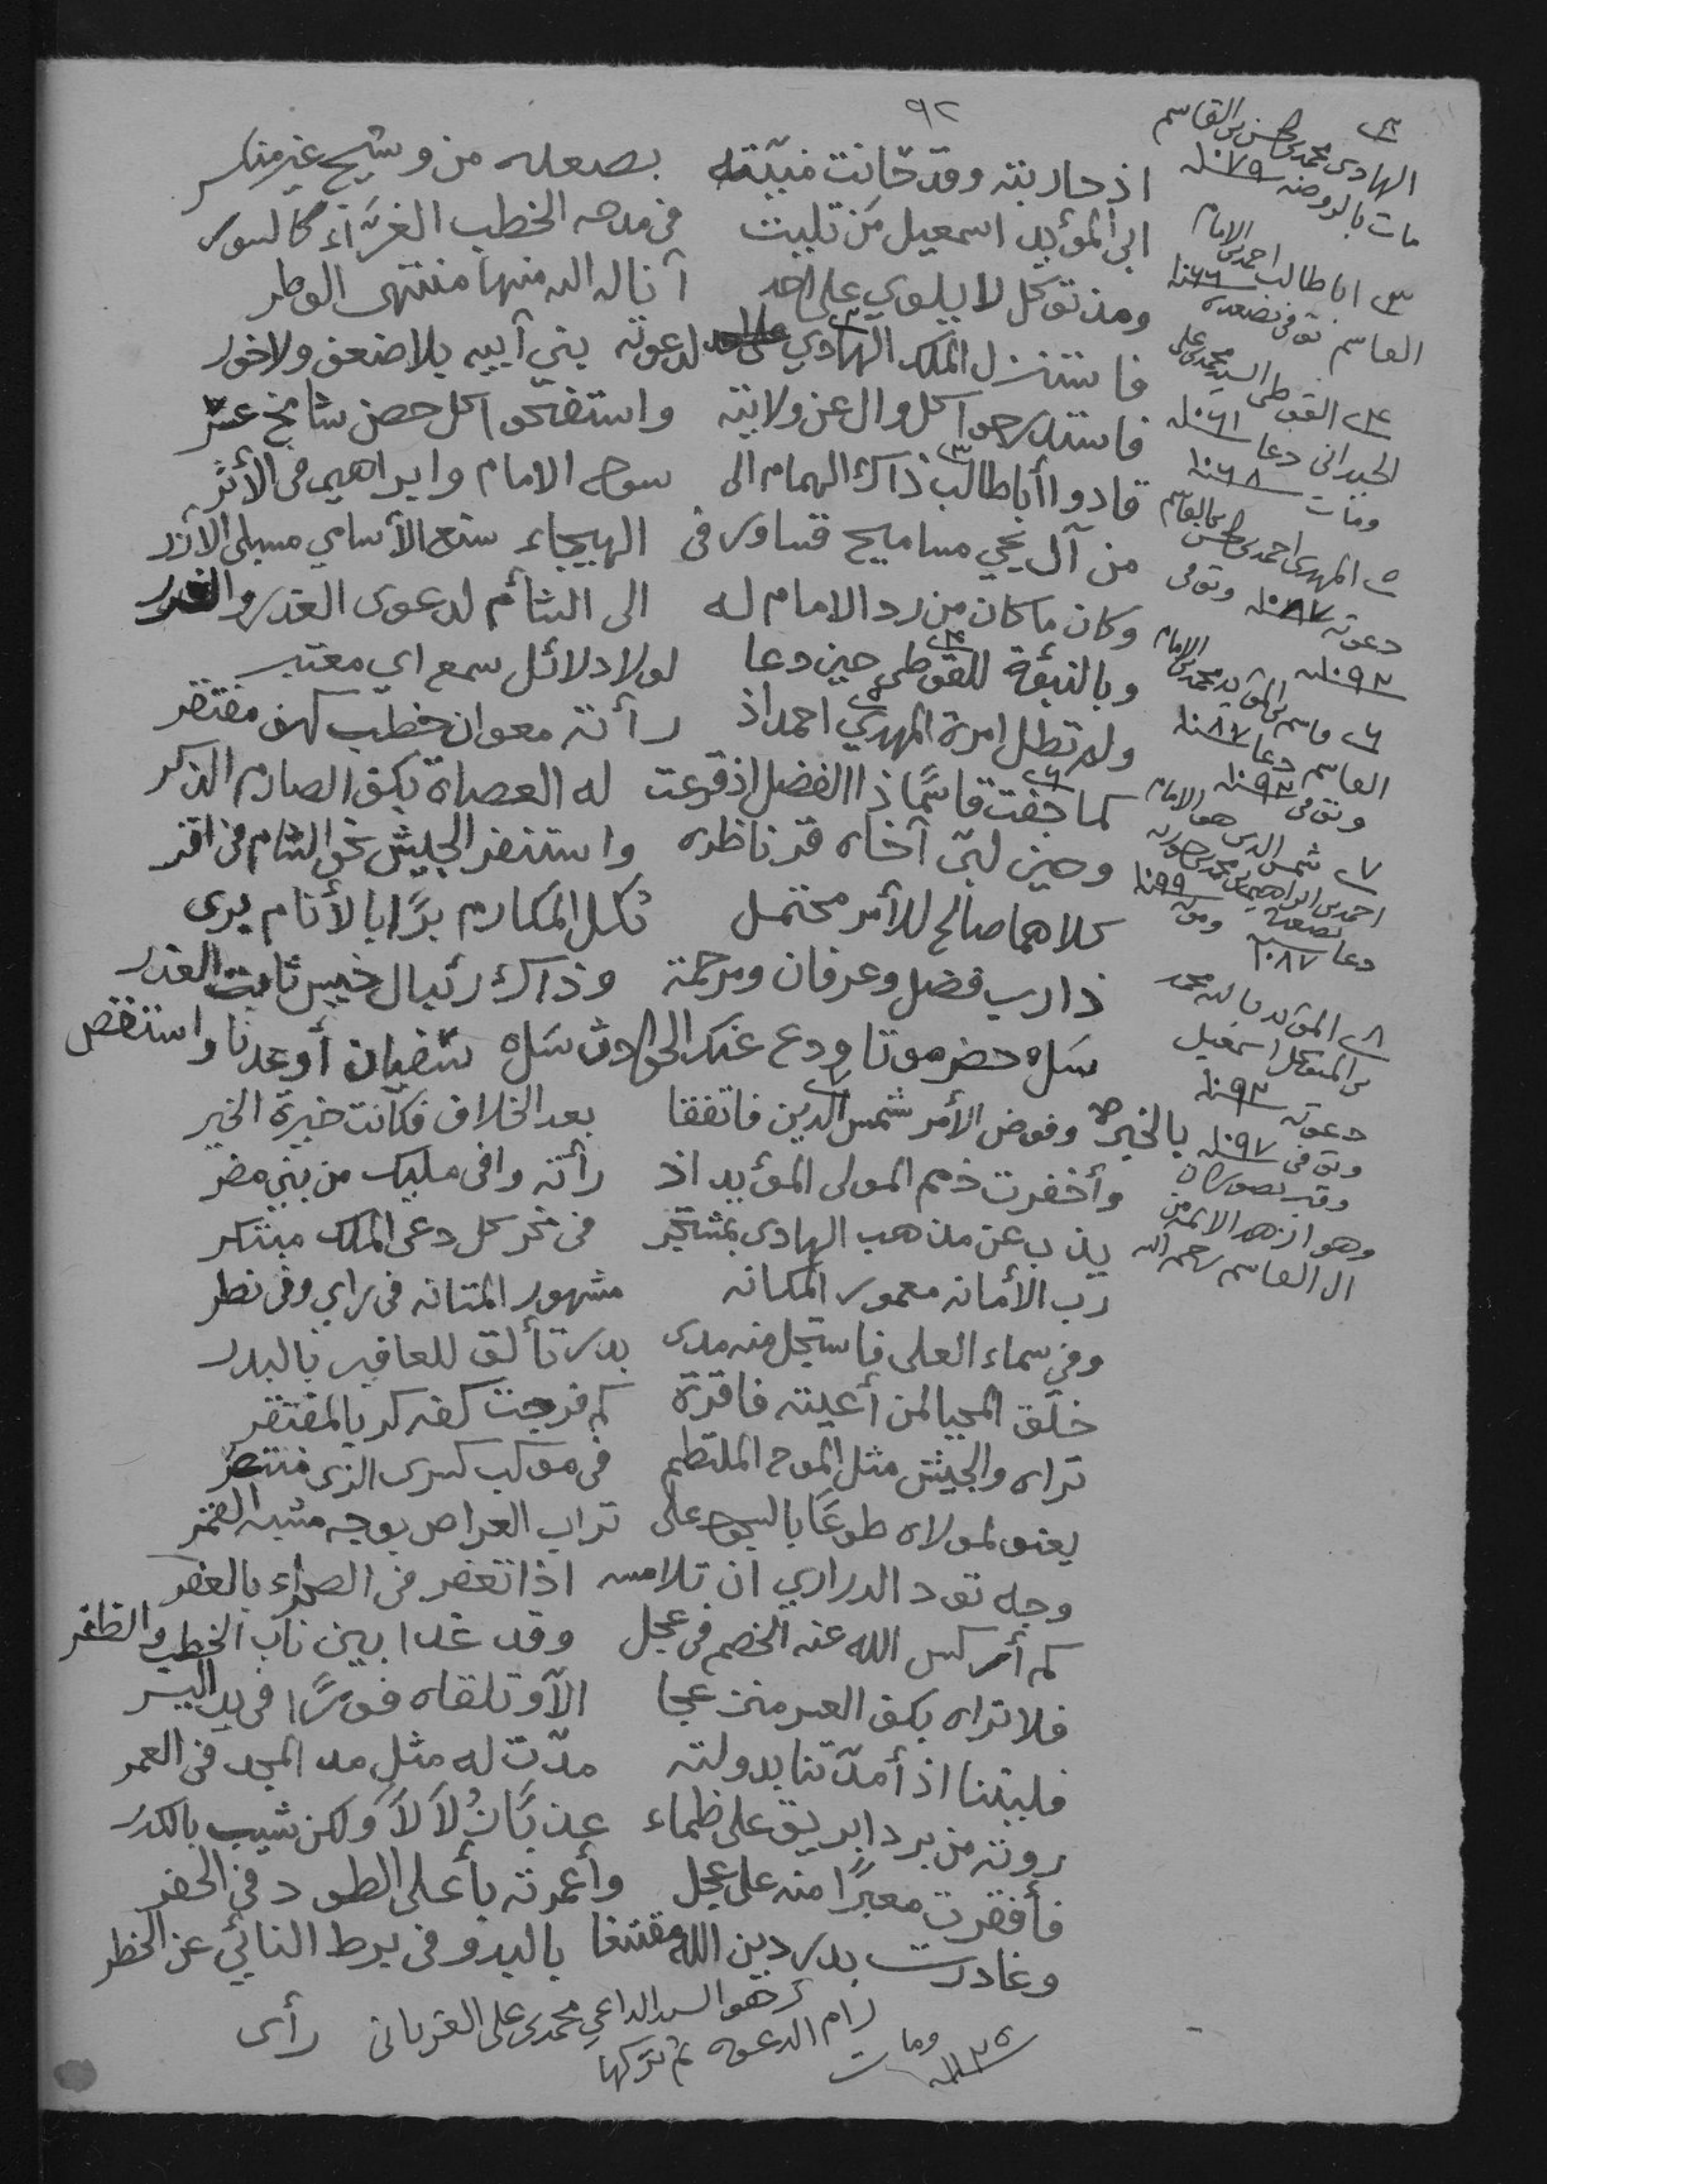 ٩٢
اذ حاربته وقد حانت منيته بصعده من وشيج غير منكسر
الى المؤيد اسمعيل من تليت في مدحه الخطب الغرآء كالسور
ومذ توكل لا يلوي على احد آناله الله منها منتهى الوطر
فاستنزل الملك الهادي لدعوته بني آبيه بلا ضعف ولا خور
فاستدرجوا كل وال عن ولايته واستفتحوا كل حصن شامخ عسر
قادوا أباطالب ذاك الهمام الى سوح الامام وابراهيم في الأثر
من آل يحيى مساميح قساور في الهيجاء شنع الأسامي مسبلى الأزر
وكان ما كان من رد الامام له الى الشأم لدعوى العذر والغدر
وبالنبؤة للقوطي حين دعا لولا دلائل سمع اي معتبر
ولم تطل امرة المهدي احمد اذ رأته معوان خطب كهف مفتقر
كما جفت قاسما ذا الفضل اذ قرعت له العصاة بكف الصارم الذكر
وحين لبى آخاه قر ناظره واستنفر الجيش نحو الشام في اثر
كلاهما صالح للأمر محتمل ثكل المكارم برا بالأنام يرى
ذا رب فضل وعرفان ومرحمة وذاك رئبال خيس ثابت الغدر
سله حضرموتا ودع عنك الحوادث سله شفيان أو عدنا واستقص
بالخبر وفوض الأمر شمس الدين فاتفقا بعد الخلاف فكانت خيرة الخير
وأخفرت ذمم المولى المؤيد اذ رأته وافى مليك من بني مضر
يذب عن مذهب الهادى بمشتجر في نحر كل دعى الملك مبتكر
رب الأمانه معمور المكانه مشهور المتانه في راي وفي نظر
وفي سماء العلى فاستجل منه مدى بدر تألق للعافين بالبدر
خلق المحيا لمن أعيته فاقرة كم فرجت كفه كربا لمفتقر
تراه والجيش مثل الموج الملتطم في موكب كسرى الذى منتصر
يعنو لمولاه طوعا بالسجود على تراب العراص بوجه مشبه القمر
وجه تود الدراري ان تلامسه اذا تعفر في الصحراء بالعفر
كم أركس الله عنه الخصم في عجل وقد غدا بين ناب الخطب والظفر
فلا تراه بكف العسر منزعجا الآ وتلقاه فورا في يد اليسر
فليتنا اذ أمدتنا بدولته مدت له مثل مد المجد في العمر
روته من برد ابريق على ظماء عذبا زلالا ولكن شيب بالكدر
فأقفرت معبرا منه على عجل وأعمرته بأعلى الطود في الحفر
وغادرت بدر دين الله مقتنعا بالبدو في برط النائي عن الخطر
رأى
الهادى محمد بن الحسن بن القاسم
مات بالروضه ١٠٧٩
٣ اباطالب احمد بن الامام
القاسم توفى بصعده ١٠٦٦
٤ القوطى السيد محمد بن علي
الحيدانى دعا ١٠٦١
ومات ١٠٦٨
٥ المهدى احمد بن الحسن بن القاسم
دعوته ١٠٨٧ وتوفى
١٠٩٢
٦ قاسم بن المؤيد محمد بن الامام
القاسم دعا ١٠٨٧
وتوفى
٧ شمس الدين هو الامام
احمد بن ابراهيم بن محمد
دعا بصعدة ١٠٨٧ ١٠٩٩
٨ المؤيد بالله محمد
بن المتوكل اسمعيل
دعوته ١٠٩٢
وتوفى ١٠٩٧
وهو ازهد الائمه من
ال القاسم رحمه الله
هو السيد الداعي محمد بن على الغربانى
رام الدعوه ثم تركها
ومات